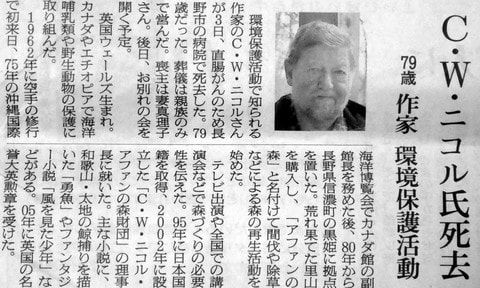 C・W・ニコル氏死去
79歳 作家 環境保護活動
環境保護活動で知られる
作家のC・W・ニコルさん
が3日、直腸がんのため長
野市の病院で死去した。79
歳だった。葬儀は親族のみ
で営んだ。喪主は妻真理子
さん。後日、お別れの会を
開く予定。
英国ウェールズ生まれ。
カナダやエチオピアで海洋
哺乳類や野生動物の保護に
取り組んだ。
1962年に空手の修行
で初来日、75年の沖縄国際
海洋博覧会でカナダ館の副
館長を務めた後、80年から
長野県信濃町の黒姫に拠点
を置いた。荒れ果てた里山
を購入し、「アファンの
森」と名付けて間伐や除草
などによる森の再生活動を
始めた。
テレビ出演や全国での講
演会などで森づくりの必要
性を伝えた。95年に日本国
籍を取得、2002年に設
立した「C・W・ニコル・
アファンの森財団」の理事
長に就いた。主な小説に、
和歌山・太地の鯨捕りを描
いた「勇魚」やファンタジ
ー小説「風を見た少年」な
どがある。05年に英国の名
誉大英勲章を受けた。